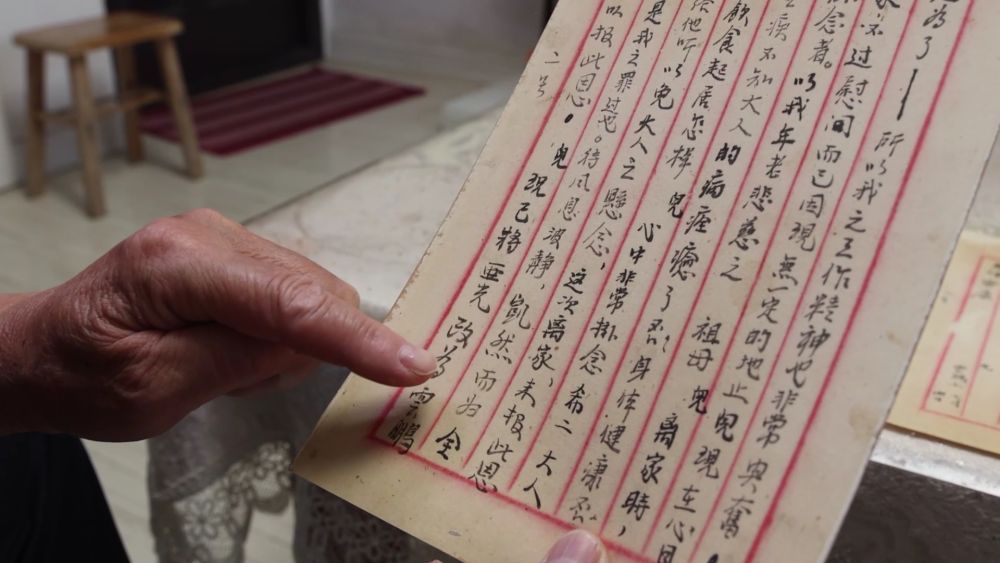 為了——所以我之工作精神也非常興奮
家不过慰问而已因現無一定的地止兒現在心目
念者。以我年老悲慈之祖母兒離家時，
不知大人的病痊癒了否，身体健康否
飲食起居怎樣兒心中非常掛念希二大人
给他听以免大人之懸念，這次离家，未报此恩
是我之罪过也。待风息波静，凱然而归全
以报此恩。兒現已將亚光改为雲鵬
二号